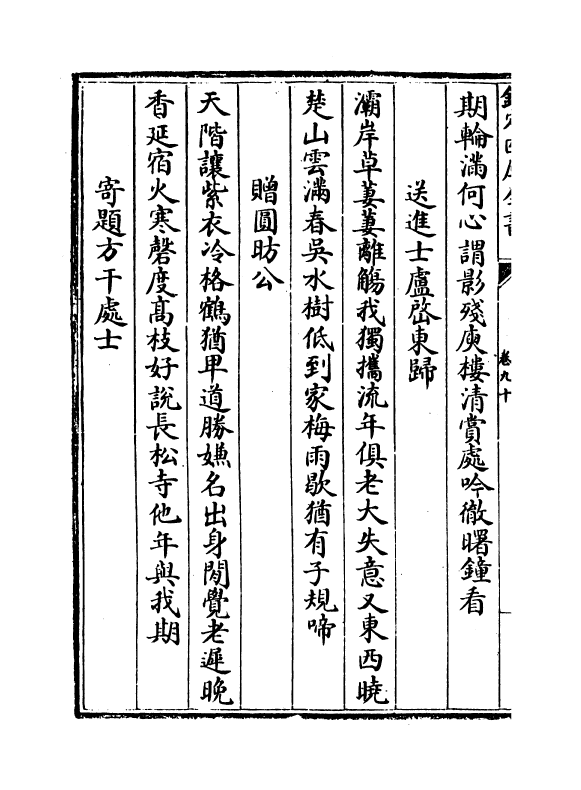 欽定四庫全書
卷九十
期輪滿何心謂影殘庾樓清賞處吟徹曙鐘看
送進士盧啓東歸
灞岸草萋萋離觴我獨攜流年俱老大失意又東西曉
楚山雲滿春吳水樹低到家梅雨歇猶有子規啼
贈圓昉公
天階讓紫衣冷格鶴猶卑道勝嫌名出身閒覺老遲晚
香延宿火寒磬度髙枝好說長松寺他年與我期
寄題方干處士